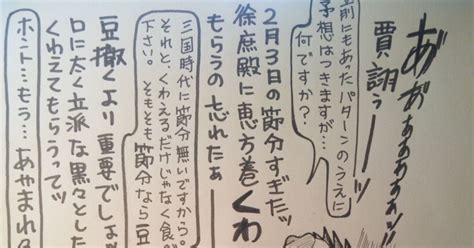 あ゙ぁぁああああッ
賈詡ぅーッ
前にもあったパターンのうえに
予想はつきますが…
何ですか?…
2月3日の節分すぎたッ
徐庶殿に恵方巻くわ
もらうの忘れたぁー
三国時代に節分無いですから。
それと、くわえるだけじゃなく食
下さい。そもそも節分なら豆
豆撒くより重要でしょッ
口に太く立派な黒々とした
くわえてもらうってッ
ホント…もう…あやまれ